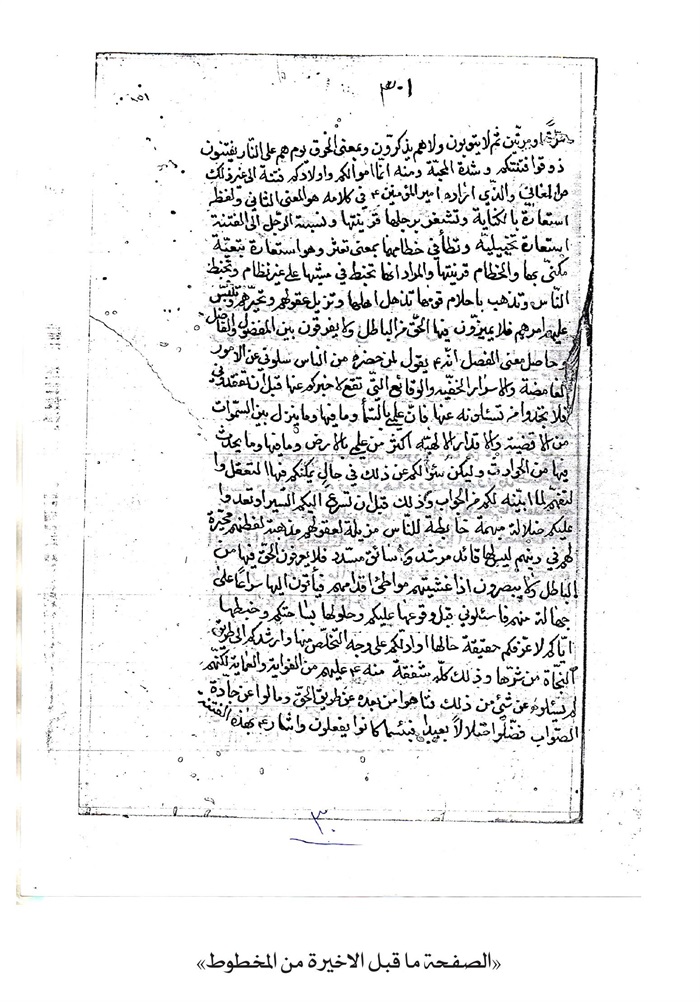 ٣٠١
او مرتين ثم لا يتوبون ولا هم يذكرون وبمعنى الحرق يوم هم على النار يفتنون
ذوقوا فتنتكم وشدة المحبة ومنه انما اموالكم واولادكم فتنة الى غير ذلك
من المعاني والذي اراده امير المؤمنين ع في كلامه هو المعنى الثاني ولفظ
استعارة بالكناية وتشغر برجلها قرينتها ونسبة الرجل الى الفتنة
استعارة تخييلية وتطأ في خطامها بمعنى تعثر وهو استعارة تبعية
مكنى بها والخطام قرينتها والمراد انها تخبط في مشيتها على غير نظام وتخبط
الناس وتذهب باحلام قومها تذهل اهلها وتزيل عقولهم وتحيرهم وتلبس
عليهم امرهم فلا يميزون فيها الحق من الباطل ولا يفرقون بين المفضول والفاضل
وحاصل معنى الفصل انه ع يقول لمن حضره من الناس سلوني عن الامور
الغامضة والاسرار الخفية والوقائع التي تقع لاخبركم عنها قبل ان تفقدوني
فلا تجدوا من تسئلونه عنها فان علمي بالسماء وما فيها وما ينزل بين السموات
من الاقضية والاقدار الالهية اكثر من علمي بالارض وما فيها وما يحدث
فيها من الحوادث وليكن سؤالكم عن ذلك في حال يمكنكم فيها التعقل و
التفهم لما ابينه لكم من الجواب وذلك قبل ان تسرع اليكم السير او تعدوا
عليكم ضلالة مبهمة خابطة للناس مزيلة لعقولهم مذهبة لفطنهم محيرة
لهم في دينهم ليس لها قائد مرشد ولا سائق مسدد فلا يعرفون الحق فيها من
الباطل ولا يبصرون اذا غشيتهم مواطئ اقدامهم فيأتون اليها سراعا على
جهالة منهم فاسئلوني قبل وقوعها عليكم وحلولها بساحتكم وخبطها
اياكم لاعرفكم حقيقة حالها وادلكم على وجه التخلص منها وارشدكم الى طريق
النجاة من شرها وذلك كله شفقة منه ع عليهم من الغواية والعماية لكنهم
لم يسئلوه عن شئ من ذلك فتاهوا من بعده عن طريق الحق ومالوا عن جادة
الصواب فضلوا ضلالا بعيدا فبئسما كانوا يفعلون واشار ع بهذه الفتنة
٣٠
«الصفحة ما قبل الاخيرة من المخطوط»